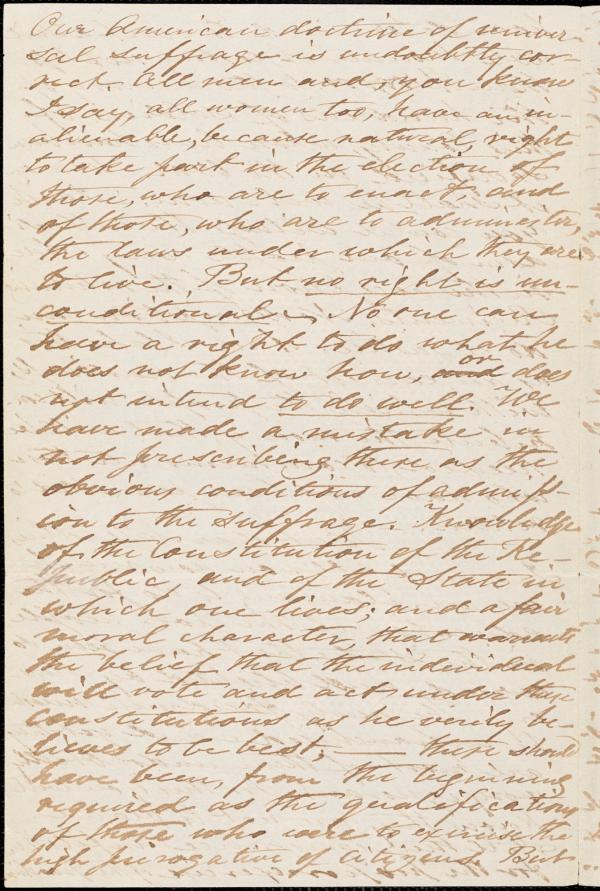 Our American doctrine of univer-
sal suffrage is undoubtly cor-
rect. All men and, you know
I say, all women too, have an in-
alienable, because natural, right
to take part in the election of
those, who are to enact, and
of those, who are to administer,
the laws under which they are
to live. But no right is un-
conditional. No one can
have a right to do what he
does not know how, and or does
not intend to do well. We
have made a mistake in
not prescribing these as the
obvious conditions of admiss-
ion to the suffrage. Knowledge
of the Constitution of the Re-
public, and of the State in
which one lives; and a fair
moral character, that warrants
the belief that the individual
will vote and act under these
constitutions as he verily be-
lieves to be best; — these should
have been, from the beginning
required as the qualifications
of those who were to exercise the
high prerogative of citizens. But